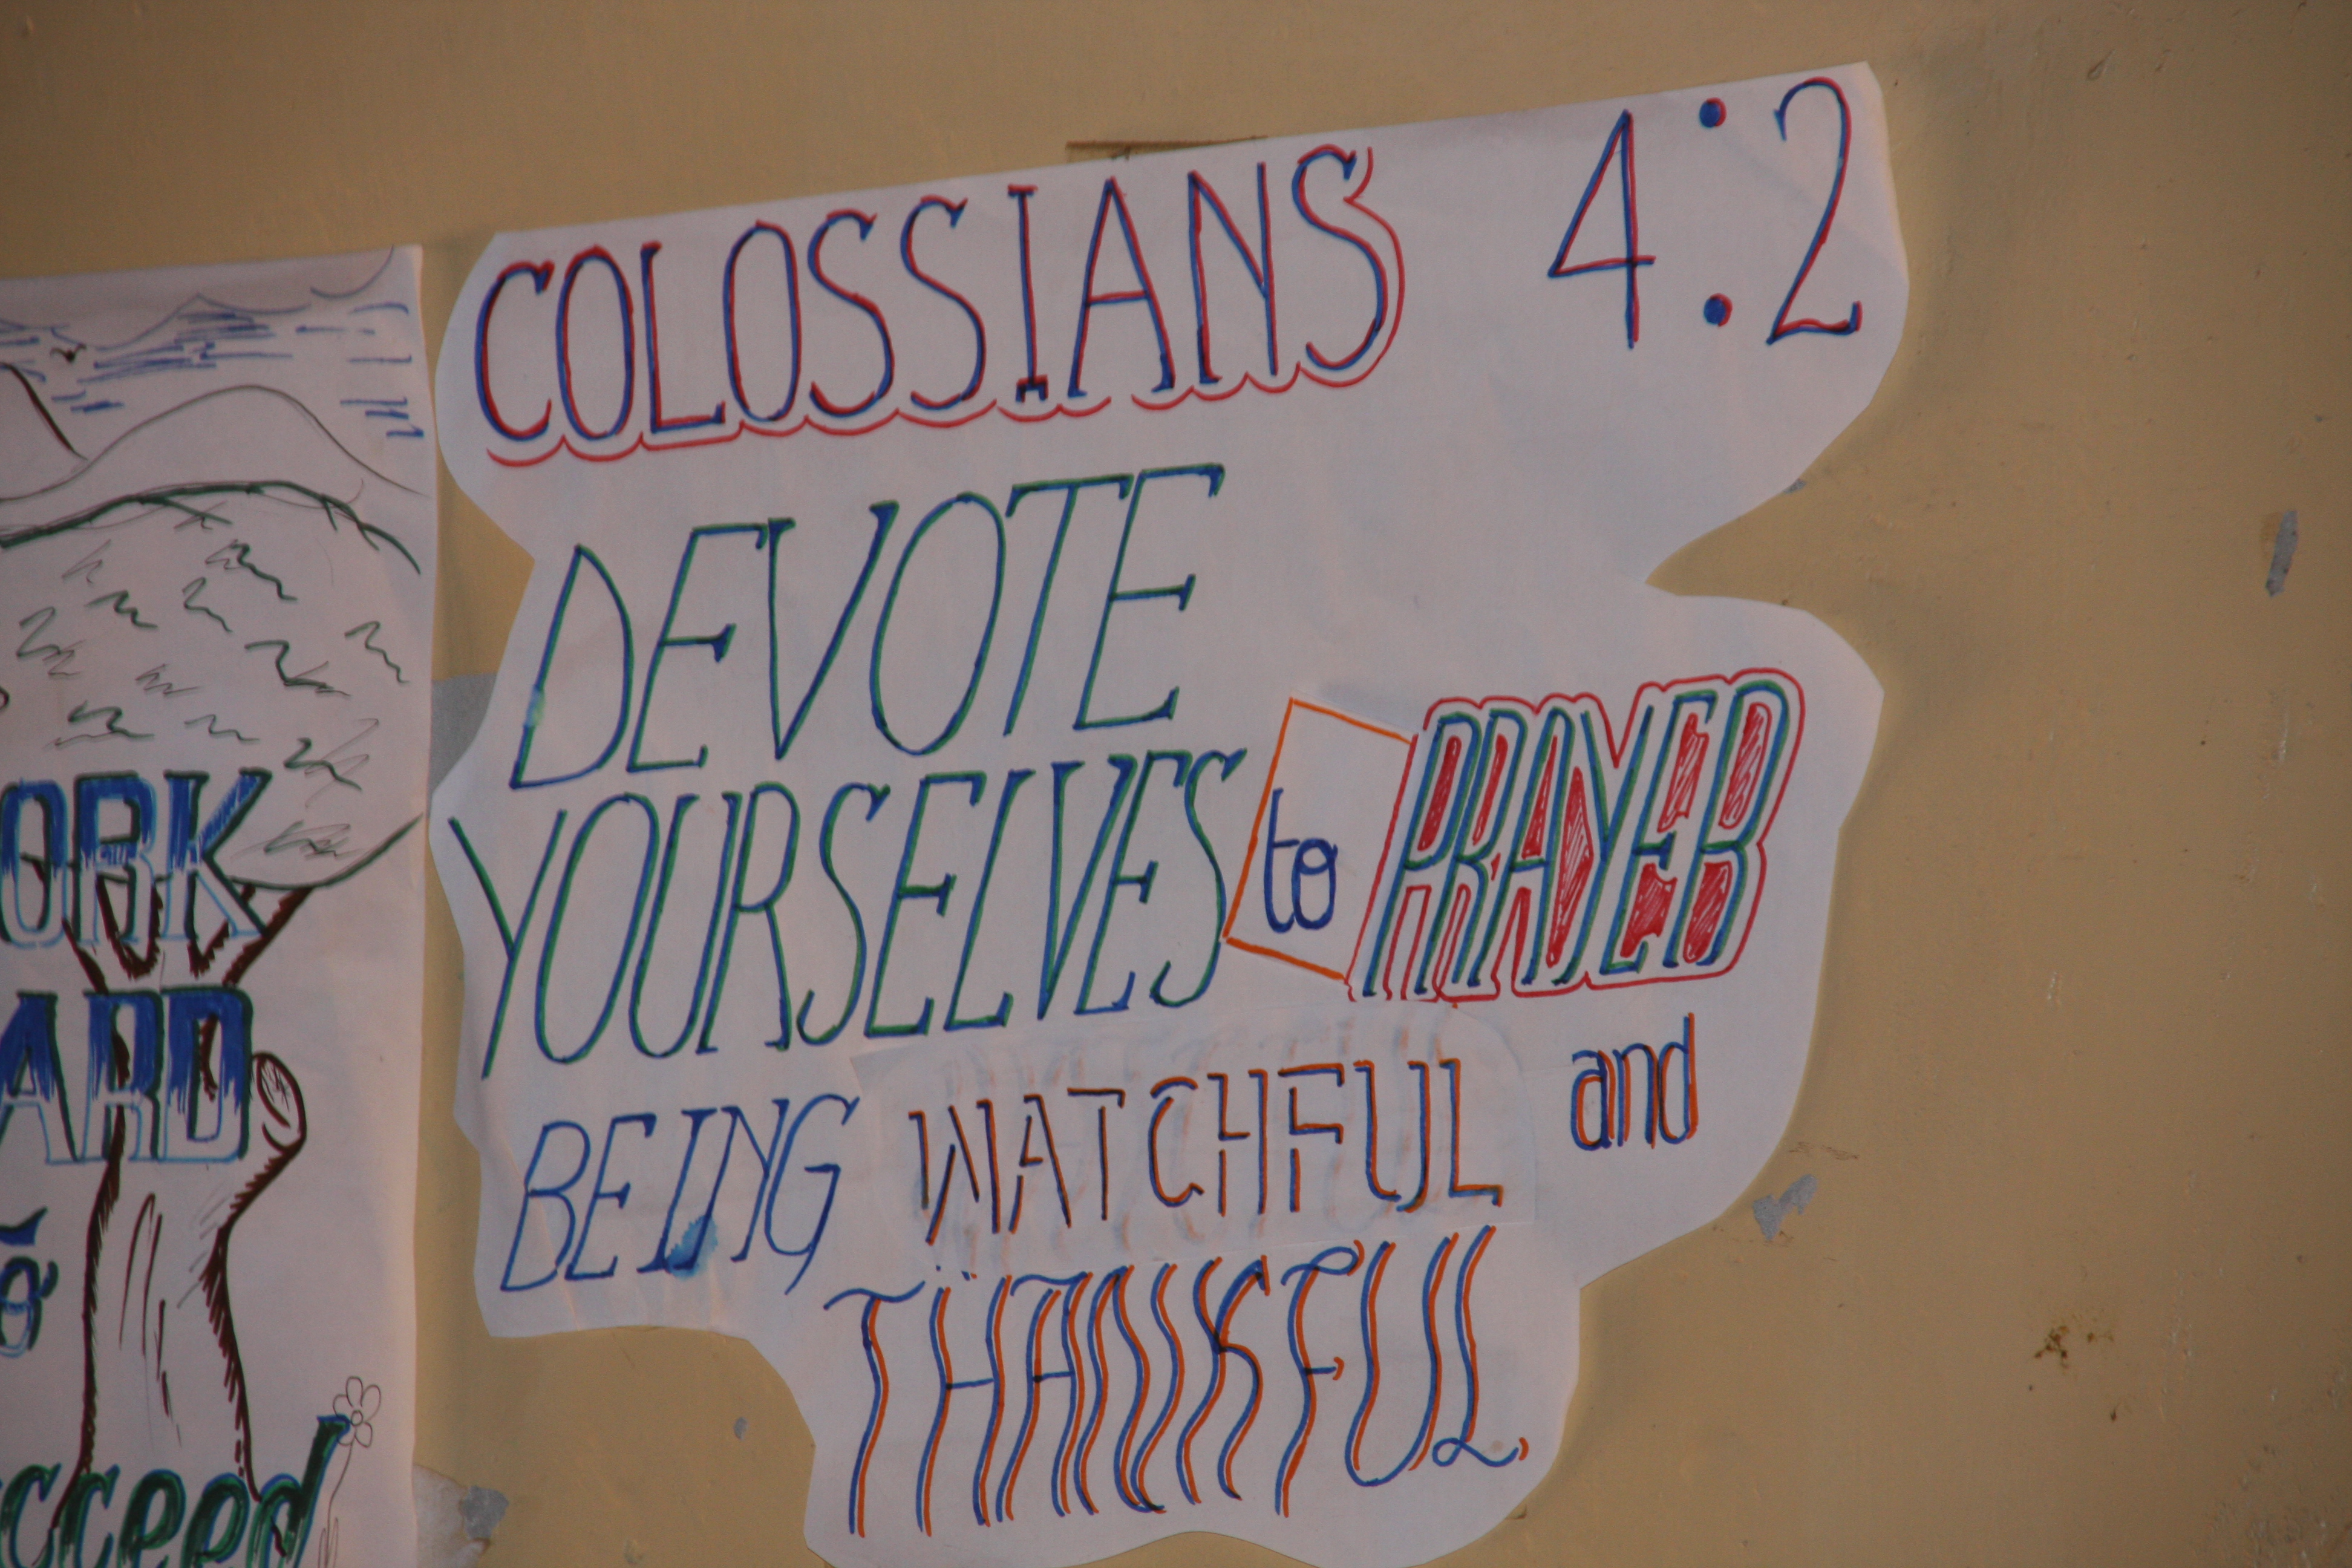 COLOSSIANS 4:2
DEVOTE
YOURSELVES to PRAYER
BEING WATCHFUL and
THANKFUL
ORK
ARD
cceed